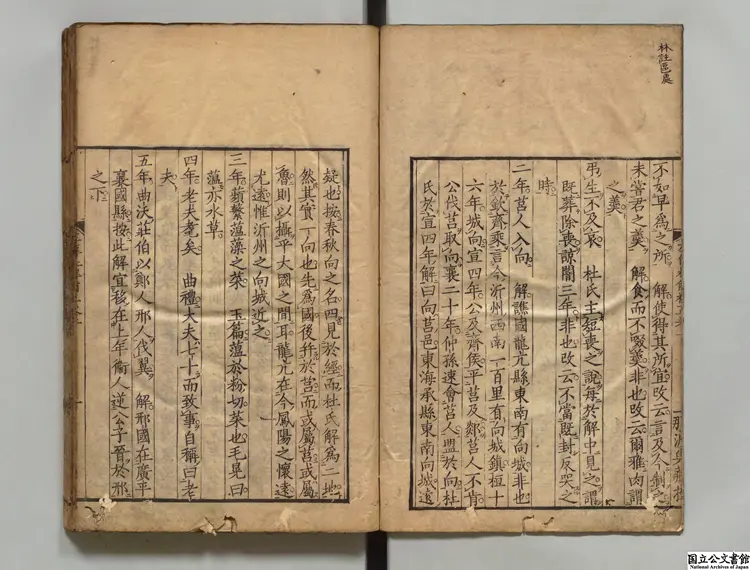 林註區處
不如早為之所　解使得其所宜改云言及今制之
未嘗君之羹　解食而不啜羹非也改云爾雅肉謂
之羹
弔生不及哀　杜氏主短喪之說每於解中見之謂
既葬除喪諒闇三年非也改云不當既封反哭之
時
二年莒人入向　解譙國龍亢縣東南有向城非也
於欽齊乘言今沂州西南一百里有向城鎮桓十
六年城向宣四年公及齊侯平莒及郯莒人不肯
公伐莒取向襄二十年仲孫速會莒人盟於向杜
氏於宣四年解曰向莒邑東海承縣東南向城遠
疑也按春秋向之名四見於經而杜氏解為二地
然其實一向也先為國後幷於莒而或屬莒或屬
魯則以攝乎大國之間耳龍亢在今鳳陽之懷遠
尤遠惟沂州之向城近之
三年蘋蘩薀藻之菜　玉篇薀於粉切菜也毛晃曰
薀亦水草
四年老夫耄矣　曲禮大夫七十而致事自稱曰老
夫
五年曲沃莊伯以鄭人邢人伐翼　解邢國在廣平
襄國縣按此解宜移在上年衛人逆公子晉於邢
之下
国立公文書館
National Archives of Japan